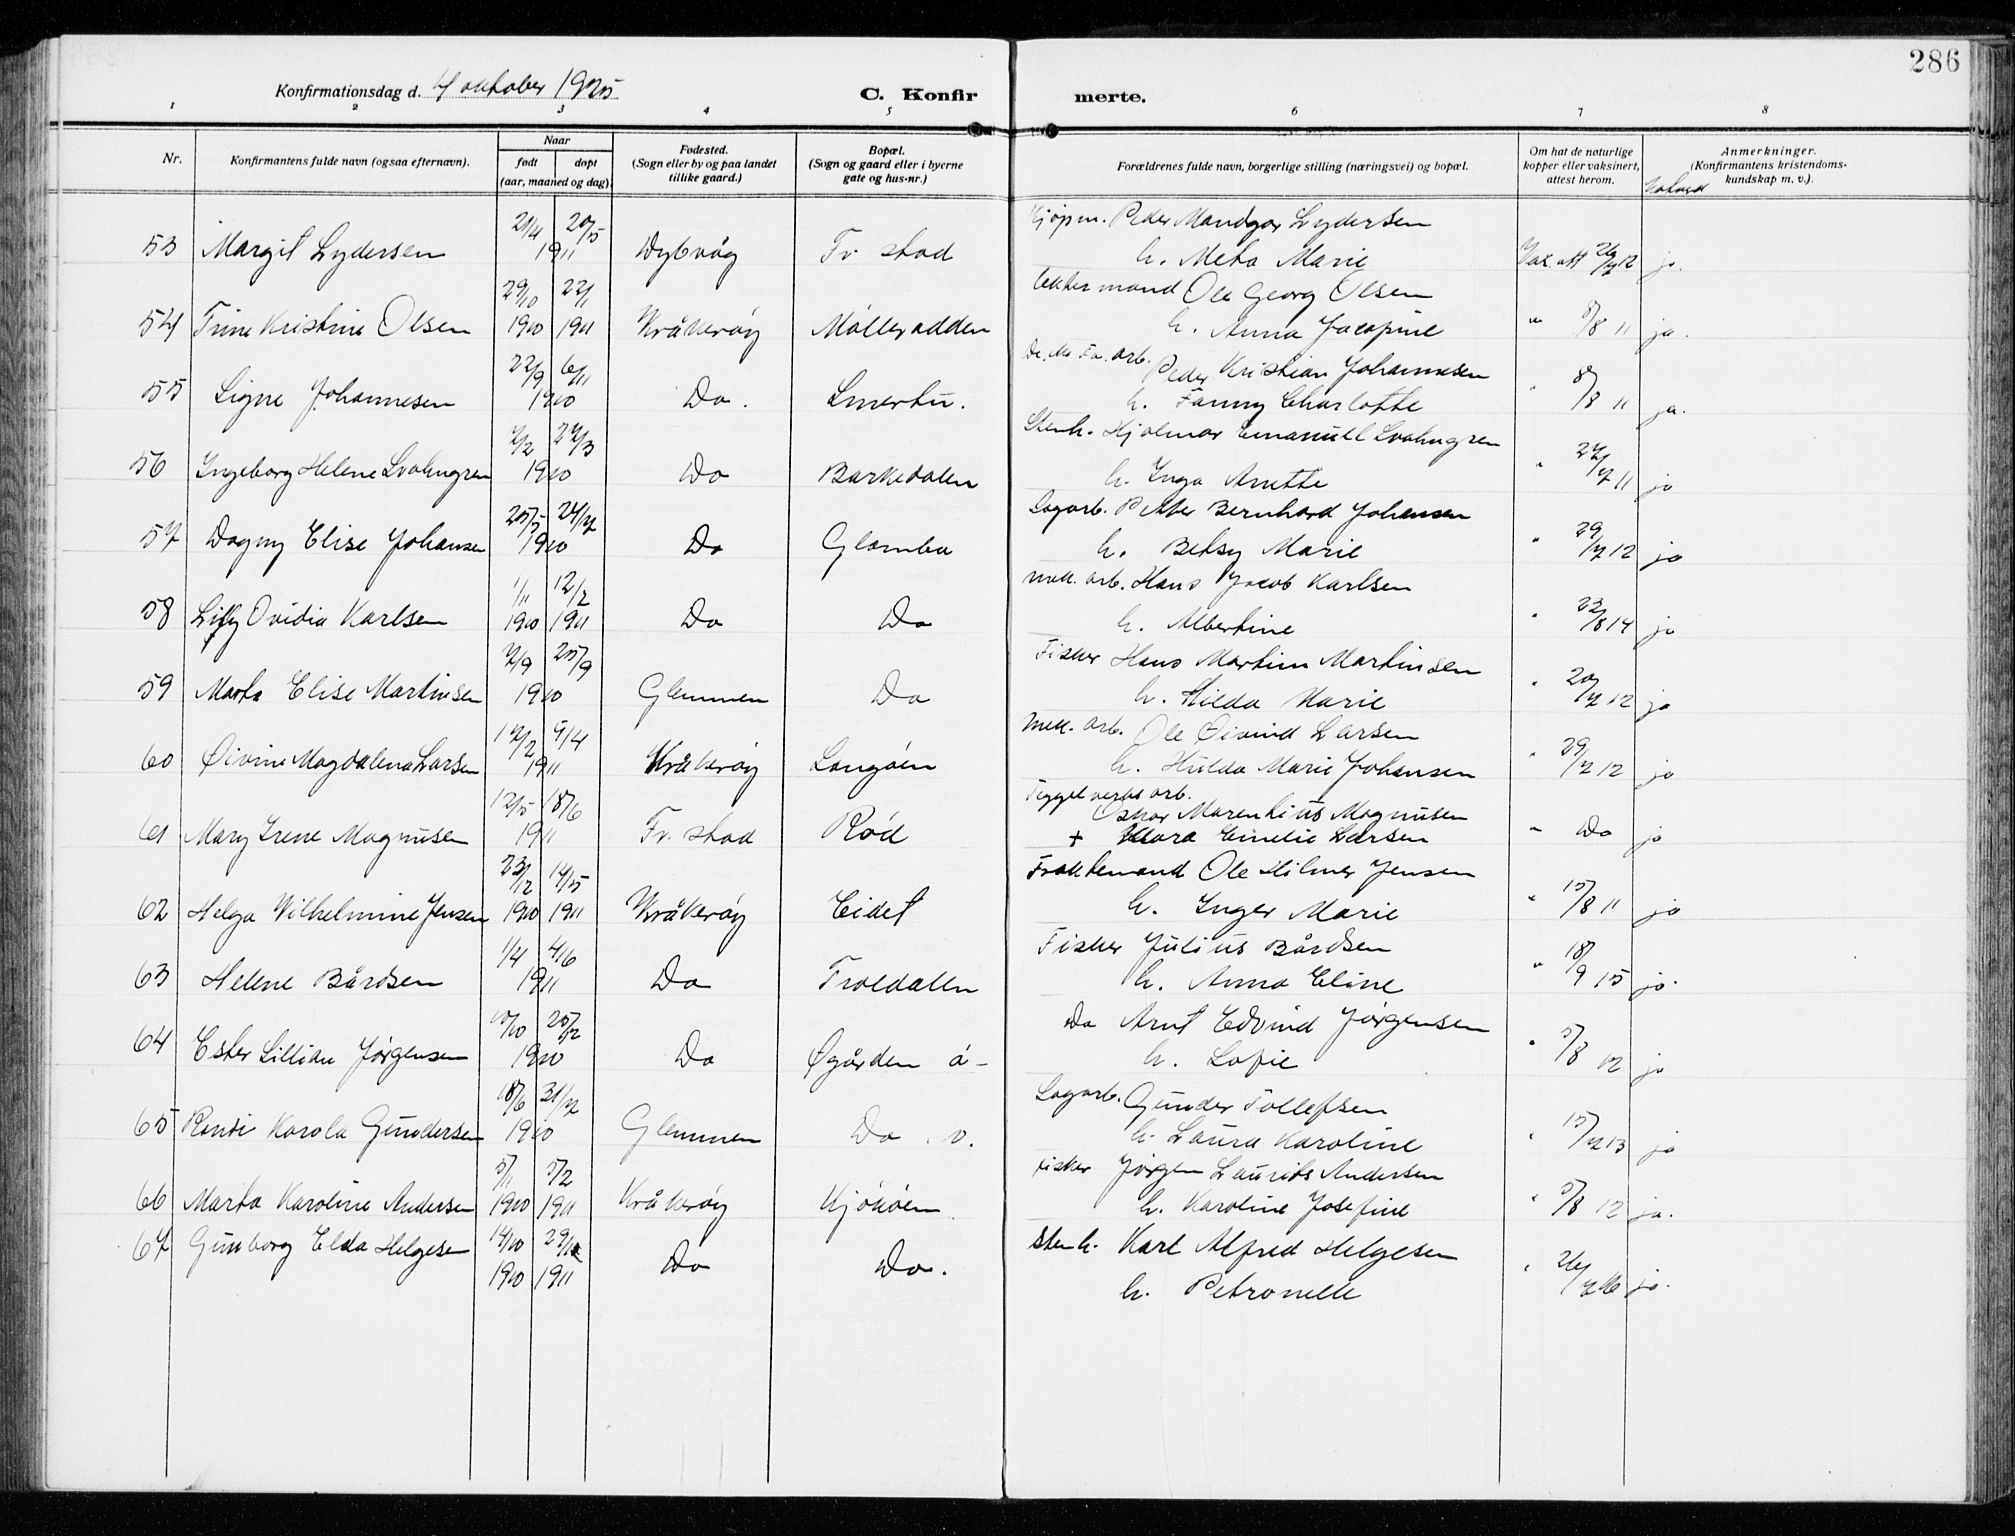 286
Konfirmationsdag d. 4 oktober 1925
C. Konfirmerte.
1 2 3 4 5 6 7 8
Nr.
Konfirmantens fulde navn (ogsaa efternavn).
Naar
født døpt
(aar, maaned og dag).
Fødested.
(Sogn eller by og paa landet
tillike gaard.)
Bopæl.
(Sogn og gaard eller i byerne
gate og hus-nr.)
Forældrenes fulde navn, borgerlige stilling (næringsvei) og bopæl.
Om hat de naturlige
kopper eller vaksinert,
attest herom.
Anmerkninger.
(Konfirmantens kristendoms-
kundskap m. v.).
21/4 20/5 Kjøpm. Peder Mandgor Lydersen
53 Margit Lydersen 1911 Dybvåg Fr. stad h. Meta Marie Vax. att 26/3 12 ja.
29/10 22/1 Ole Georg Olsen
54 Trine Kristine Olsen 1910 1911 Kråkerøy Mølleradden h. Anna Jacopine " 5/8 11 ja.
22/9 6/11 arb. Peder Kristian Johannesen
55 Signe Johannesen 1910 Do. Smertu. h. Fanny Charlotte " 8/8 11 ja.
7/2 27/3 Stenh. Hjalmar Emanuell Svahngren
56 Ingeborg Helene Svahngren 1910 Do Barkedalen h. Inga Anette " 27/7 11 ja
25/5 24/7 Sagarb. Petter Bernhard Johansen
57 Dagny Elise Johansen 1910 Do Glombo h. Betsy Marie " 29/7 12 ja
1/11 12/2 mek. arb. Hans Jacob Karlsen
58 Lilly Ovidia Karlsen 1910 1911 Do Do h. Albertine " 22/8 14 ja
7/9 25/9 Fisker Hans Martin Martinsen
59 Marta Elise Martinsen 1910 Glemmen Do h. Hilda Marie " 20/7 12 ja
17/2 9/4 Mek. arb. Ole Øivind Larsen
60 Øivine Magdalena Larsen 1911 Kråkerøy Langøen h. Hulda Marie Johansen " 29/7 12 ja
12/5 18/6 Teggelverks arb. Oskar Marentius Magnusen
61 Mary Irene Magnusen 1911 Fr. stad Rød + Klara Emelie Larsen " Do ja
23/12 14/5 Fraktemand Ole Hilmer Jensen
62 Helga Vilhelmine Jensen 1910 1911 Kråkerøy Eidet h. Inger Marie " 15/8 11 ja
1/4 4/6 Fisker Julius Bårdsen
63 Helene Bårdsen 1911 Do Troldalen h. Anna Eline " 18/9 15 ja.
10/10 25/12 Do Arnt Edvind Jørgensen
64 Ester Lillian Jørgensen 1910 Do Øgården ø- h. Sofie " 5/8 12 ja
18/6 31/7 Sagarb. Gunder Tollefsen
65 Randi Karola Gundersen 1910 Glemmen Do v. h. Laura Karoline " 15/7 13 ja
5/1 5/2 Fisker Jørgen Laurits Andersen
66 Marta Karoline Andersen 1910 1911 Kråkerøy Kjøkøen h. Karoline Josefine " 5/8 12 ja.
67 Gunborg Elda Helgesen 14/10 Stenh. Karl Alfred Helgesen
1910 1911 Do Do. h. Petronelle " 26/7 16 ja.